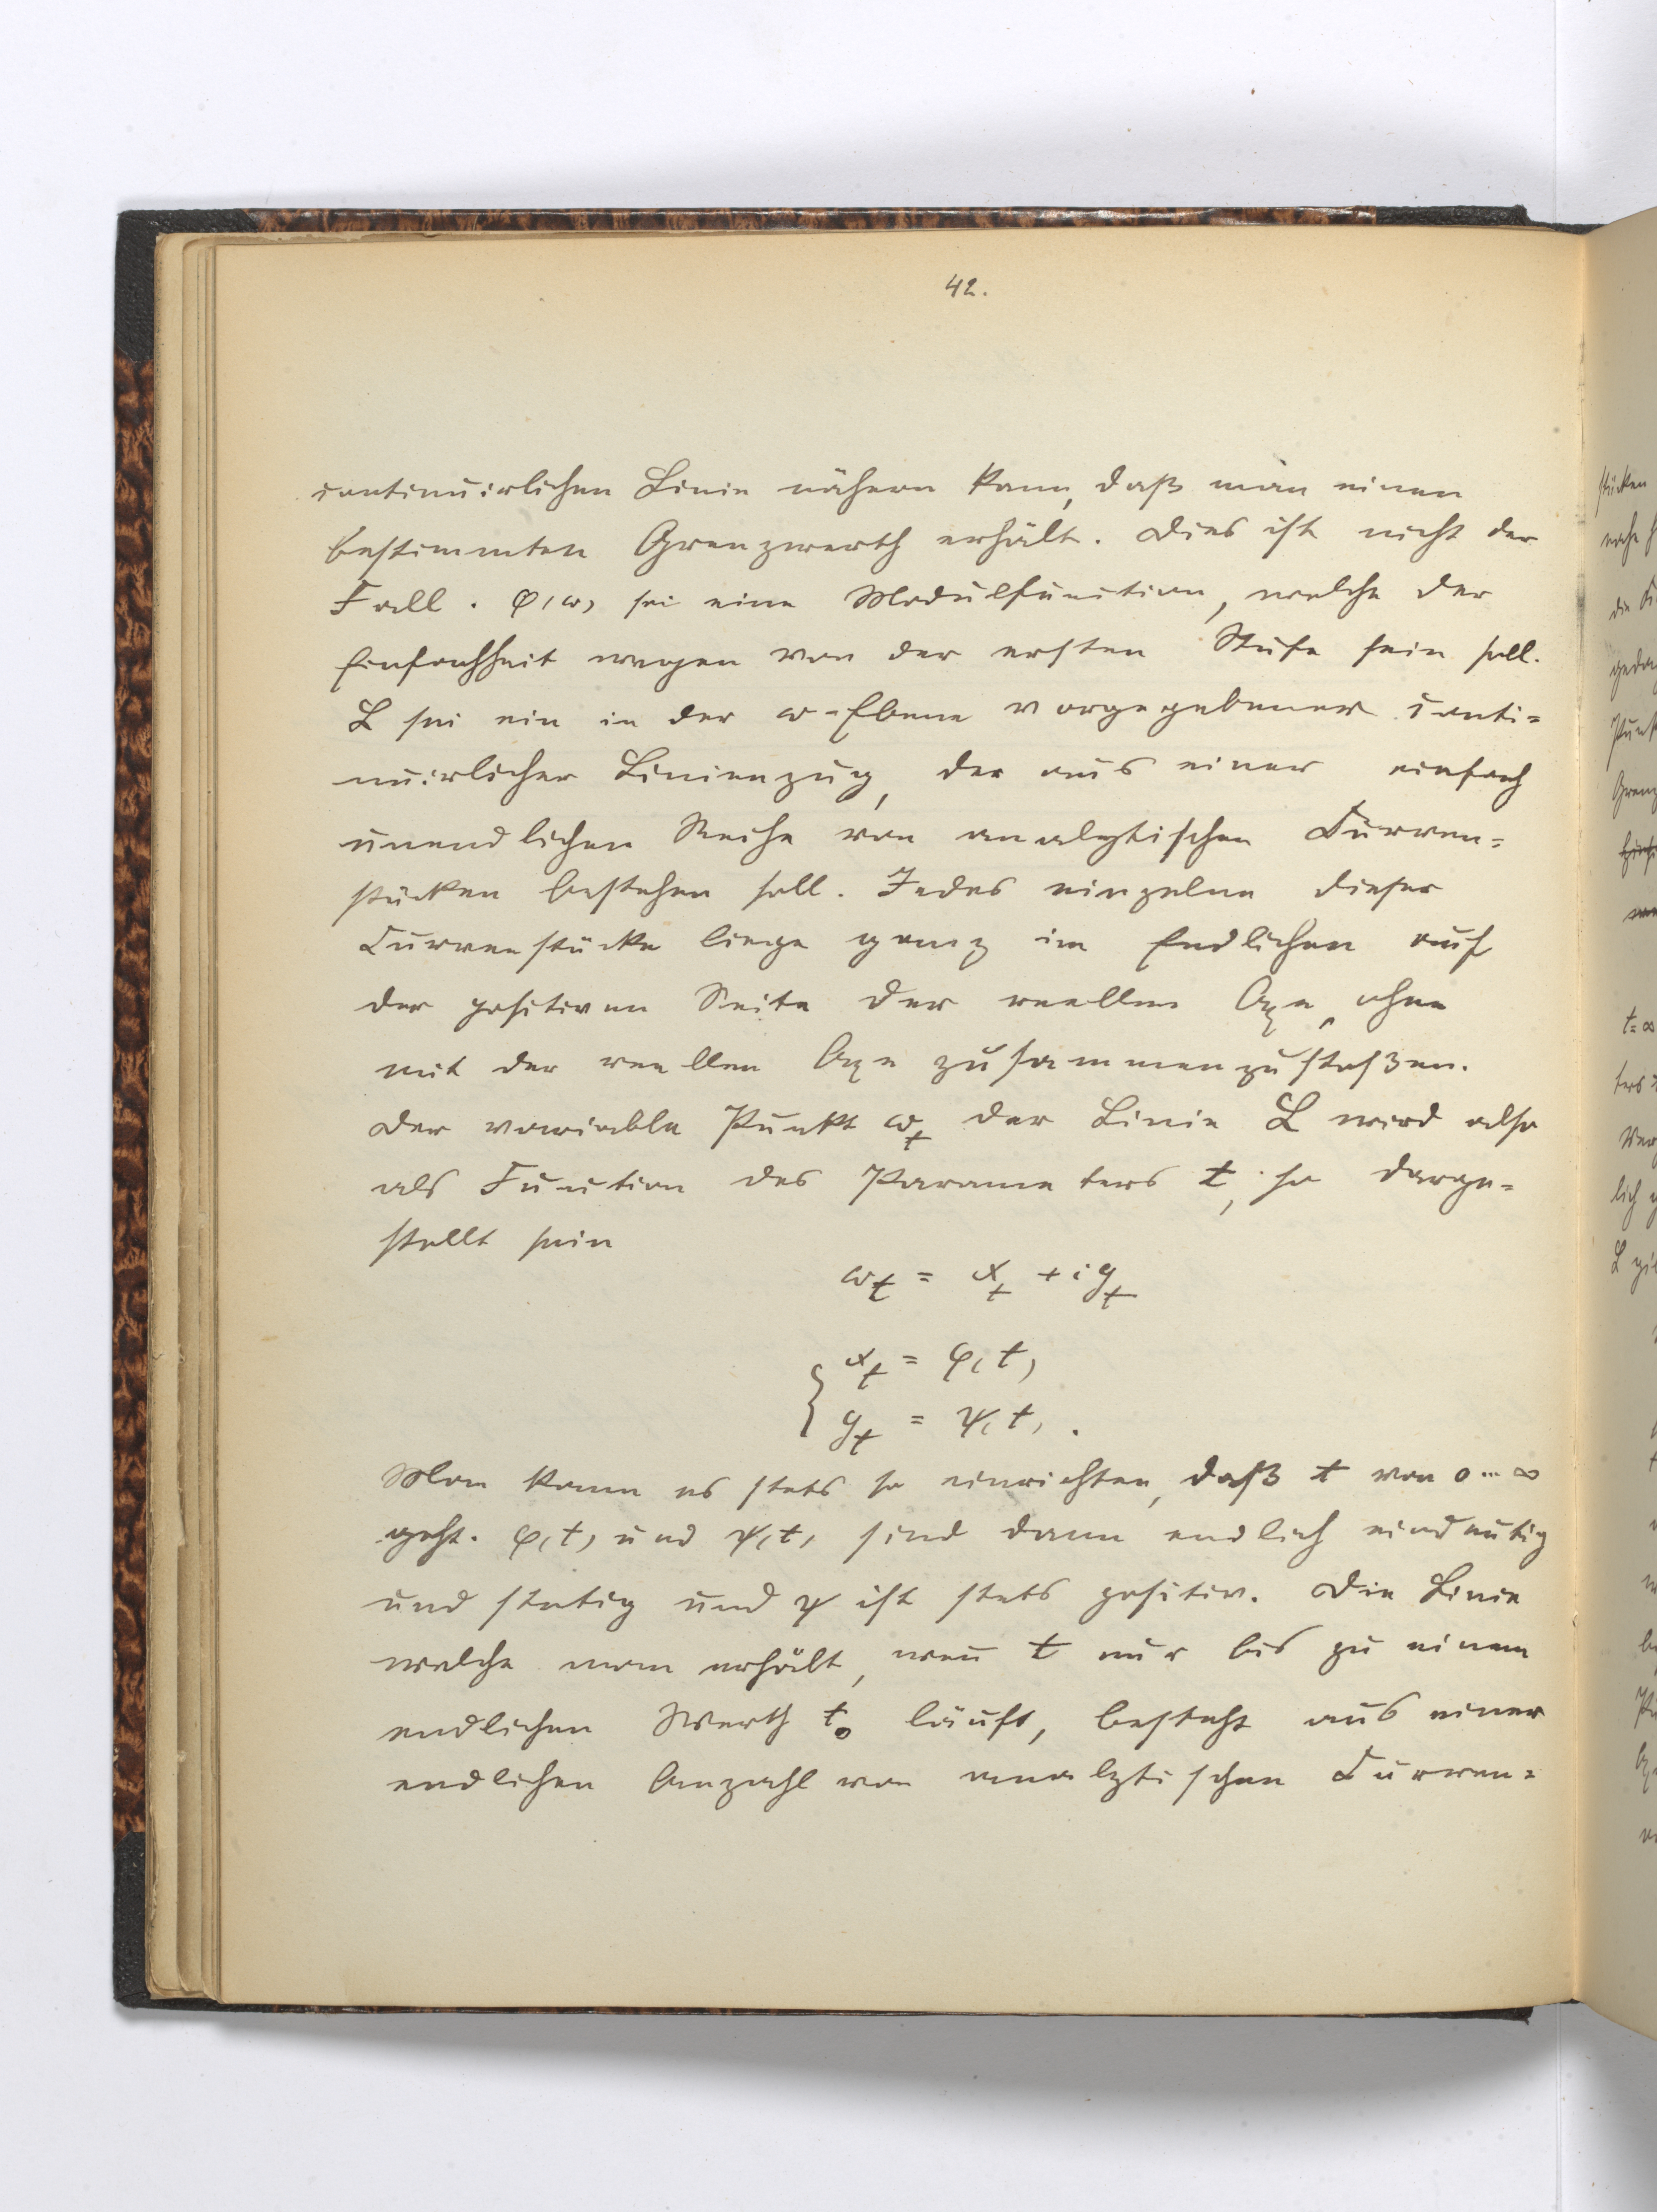 42.
continuirlichen Linie nähern kann, daß man einen
bestimmten Grenzwerth erhält. Dies ist nicht der
Fall. φ(ω) sei eine Modulfunction, welche der
Einfachheit wegen von der ersten Stufe sein soll.
L sei ein in der ω-Ebene vorgegebener conti=
nuirlicher Linienzug, der aus einer einfach
unendlichen Reihe von analytischen Curven=
stücken bestehen soll. Jedes einzelne dieser
Curvenstücke liege ganz im Endlichen auf
der positiven Seite der reellen Axe, ohne
mit der reellen Axe zusammenzustoßen.
Der variable Punkt ω_t der Linie L wird also
als Function des Parameters t, so darge=
stellt sein
ω_t = x_t + i y_t
x_t = φ(t)
y_t = ψ(t).
Man kann es stets so einrichten, daß t von 0 ... ∞
geht. φ(t) und ψ(t) sind dann endlich eindeutig
und stetig und ψ ist stets positiv. Die Linie
welche man erhält, wen̄ t nur bis zu einem
endlichen Werth t₀ läuft, besteht aus einer
endlichen Anzahl von analytischen Curven=
stücken
t = ∞